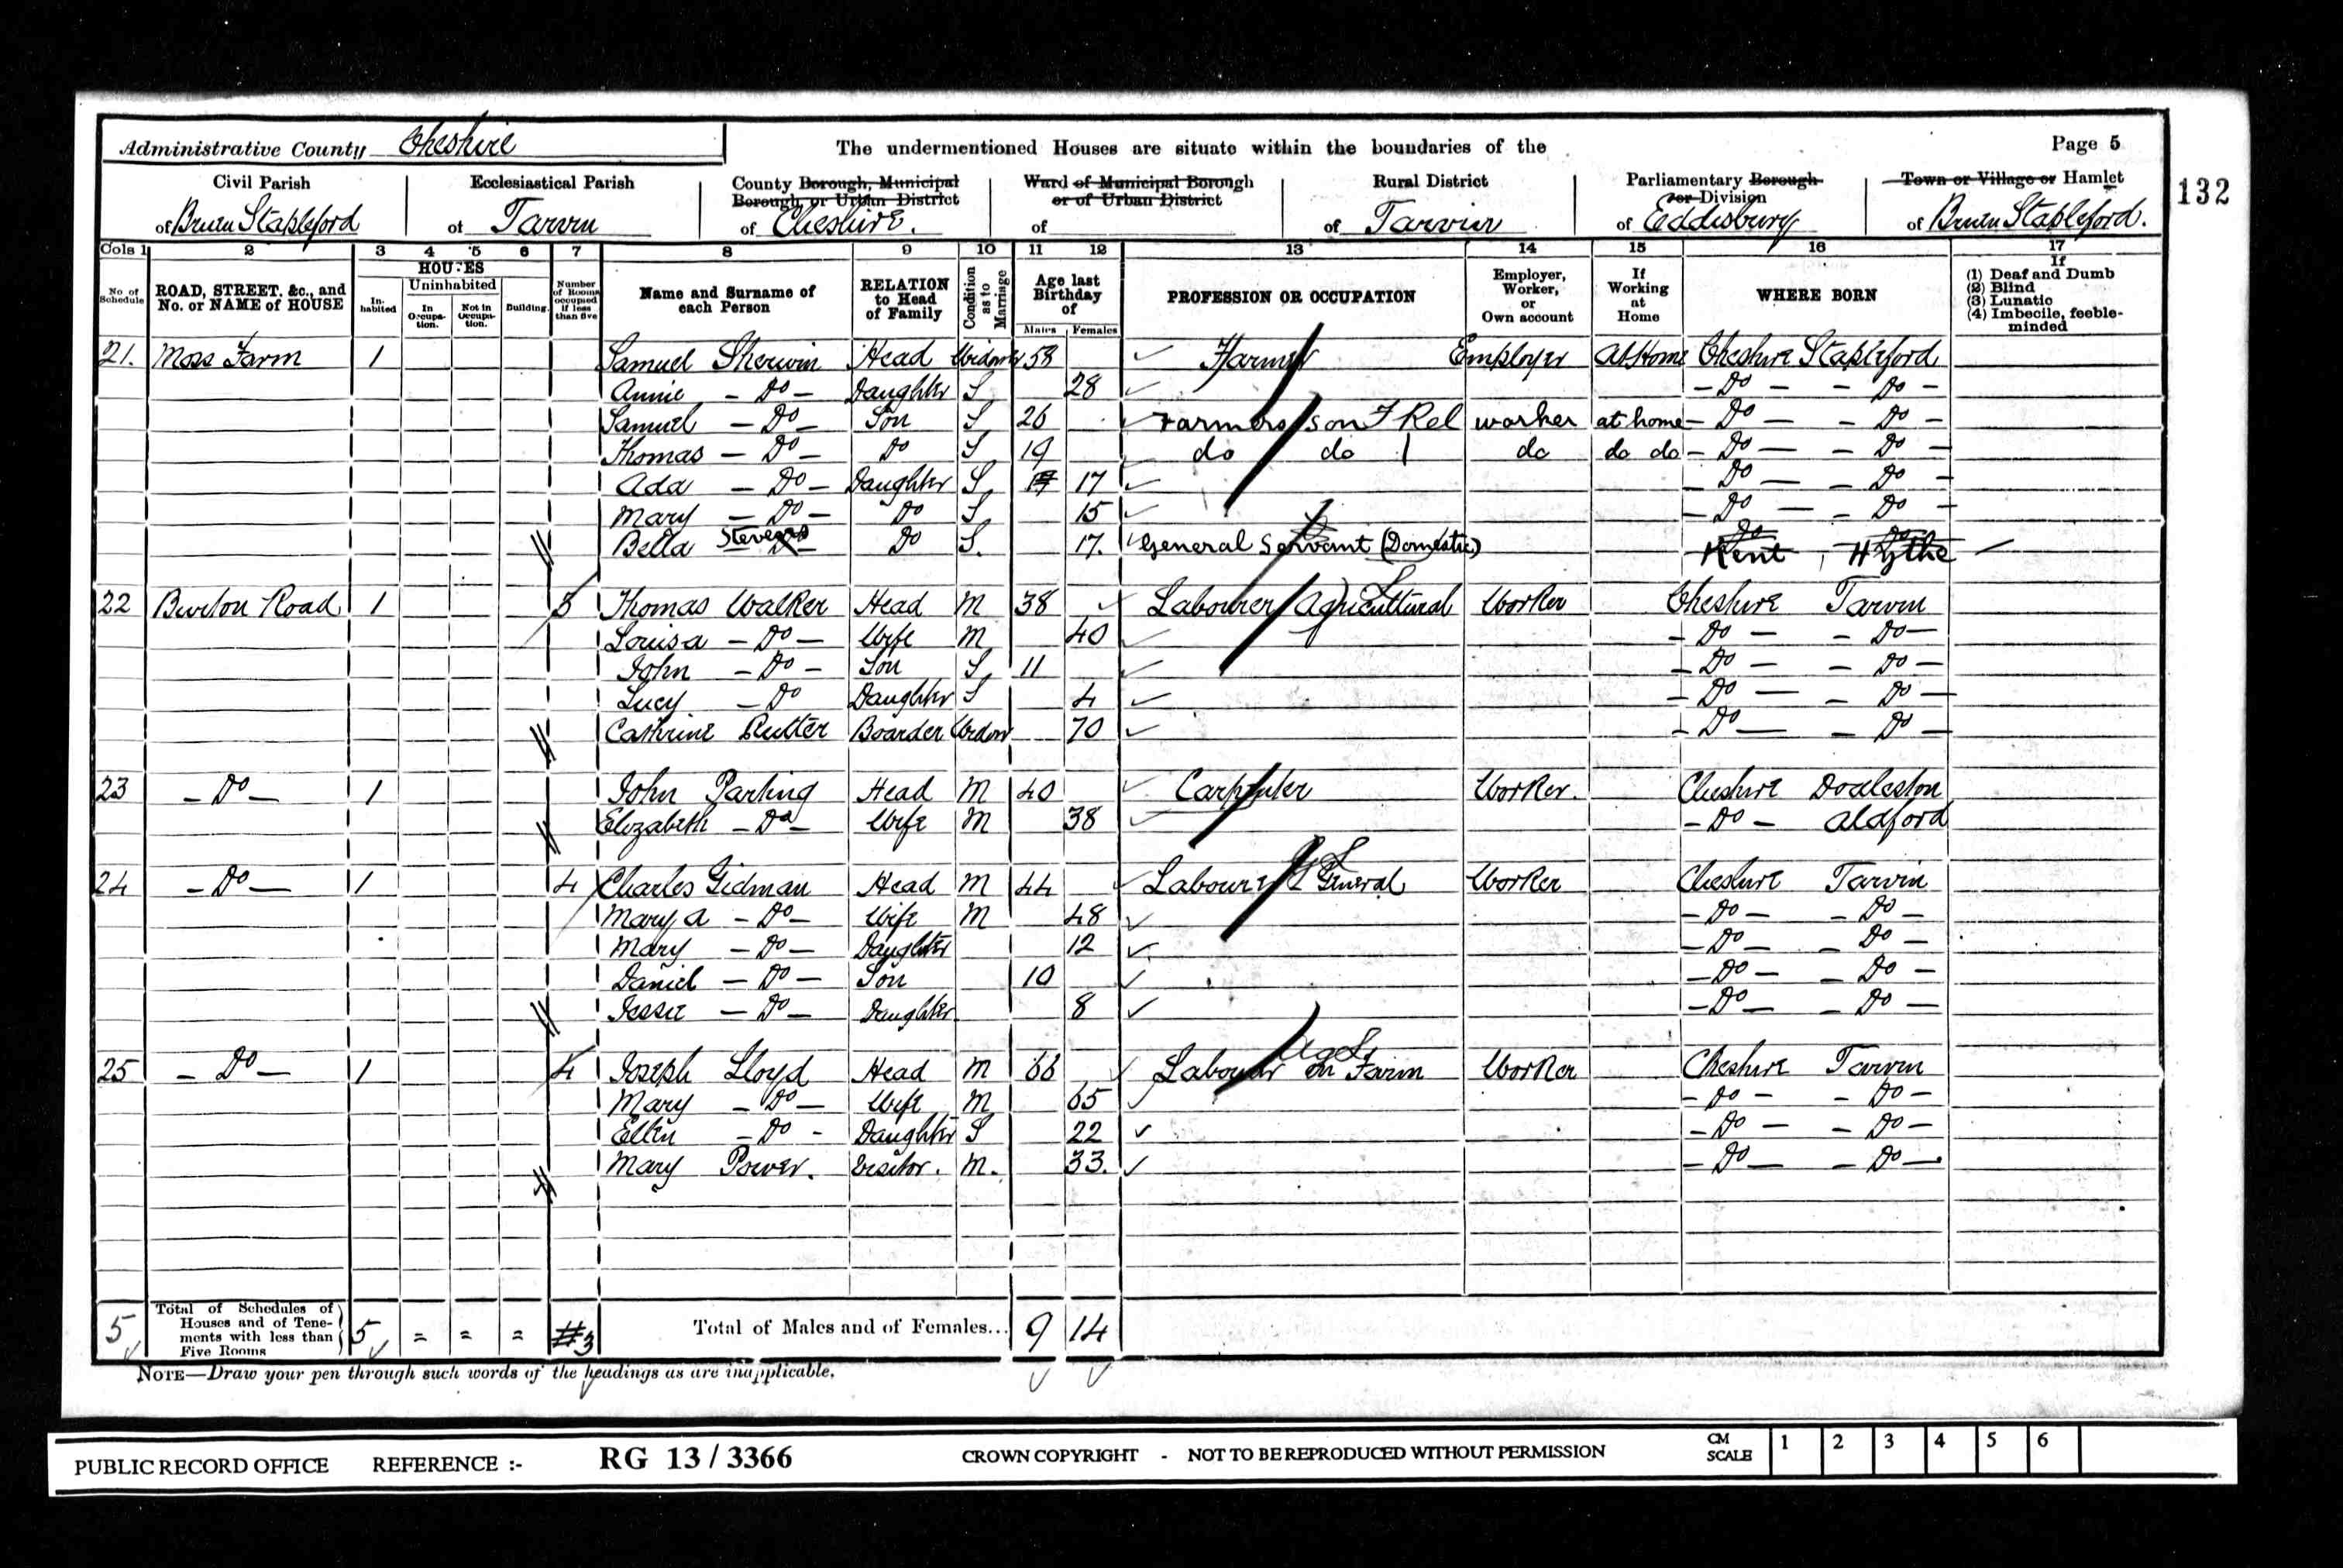 Administrative County Cheshire
The undermentioned Houses are situate within the boundaries of the
Page 5
132
Civil Parish of Bruen Stapleford
Ecclesiastical Parish of Tarvin
County Borough, Municipal Borough, or Urban District of Cheshire.
Ward of Municipal Borough or of Urban District of
Rural District of Tarvin
Parliamentary Borough or Division of Eddisbury
Town or Village or Hamlet of Bruen Stapleford.
Cols 1 2 3 4 5 6 7 8 9 10 11 12 13 14 15 16 17
No. of Schedule
ROAD, STREET, &c., and No. or NAME of HOUSE
HOUSES
Inhabited
Uninhabited
In Occupation.
Not in Occupation.
Building.
Number of Rooms occupied if less than five
Name and Surname of each Person
RELATION to Head of Family
Condition as to Marriage
Age last Birthday of
Males Females
PROFESSION OR OCCUPATION
Employer, Worker, or Own account
If Working at Home
WHERE BORN
If
(1) Deaf and Dumb
(2) Blind
(3) Lunatic
(4) Imbecile, feeble-minded
21. Moss Farm 1 Samuel Sherwin Head Widow 58 Farmer Employer At Home Cheshire Stapleford
Annie - Do - Daughter S 28 - Do - - Do -
Samuel - Do - Son S 26 Farmers son F Rel worker at home - Do - - Do -
Thomas - Do - Do S 19 do do do do do - Do - - Do -
Ada - Do - Daughter S 17 17 - Do - - Do -
Mary - Do - Do S 15 - Do - - Do -
Bella Stevens Do Do S. 17. General Servant (Domestic) Do Do Kent, Hythe
22 Burton Road 1 3 Thomas Walker Head M 38 Labourer Agricultural Worker Cheshire Tarvin
Louisa - Do - Wife M 40 - Do - - Do -
John - Do - Son S 11 - Do - - Do -
Lucy - Do Daughter S 4 - Do - - Do -
Cathrine Rutter Boarder Widow 70 - Do - - Do -
23 - Do - 1 John Parling Head M 40 Carpenter Worker. Cheshire Dodleston
Elizabeth - Do - Wife M 38 - Do - Aldford
24 - Do - 1 4 Charles Gidman Head M 44 Labourer General Worker Cheshire Tarvin
Mary A - Do - Wife M 48 - Do - - Do -
Mary - Do - Daughter 12 - Do - - Do -
Daniel - Do - Son 10 - Do - - Do -
Jessie - Do - Daughter 8 - Do - - Do -
25 - Do - 1 4 Joseph Lloyd Head M 66 Labourer on Farm Ag L Worker Cheshire Tarvin
Mary - Do - Wife M 65 - Do - - Do -
Ellen - Do - Daughter S 22 - Do - - Do -
Mary Power. Visitor. M. 33. - Do - - Do -.
5 Total of Schedules of Houses and of Tenements with less than Five Rooms 5 = = = 3 Total of Males and of Females... 9 14
NOTE—Draw your pen through such words of the headings as are inapplicable.
PUBLIC RECORD OFFICE REFERENCE :- RG 13 / 3366 CROWN COPYRIGHT - NOT TO BE REPRODUCED WITHOUT PERMISSION CM SCALE 1 2 3 4 5 6